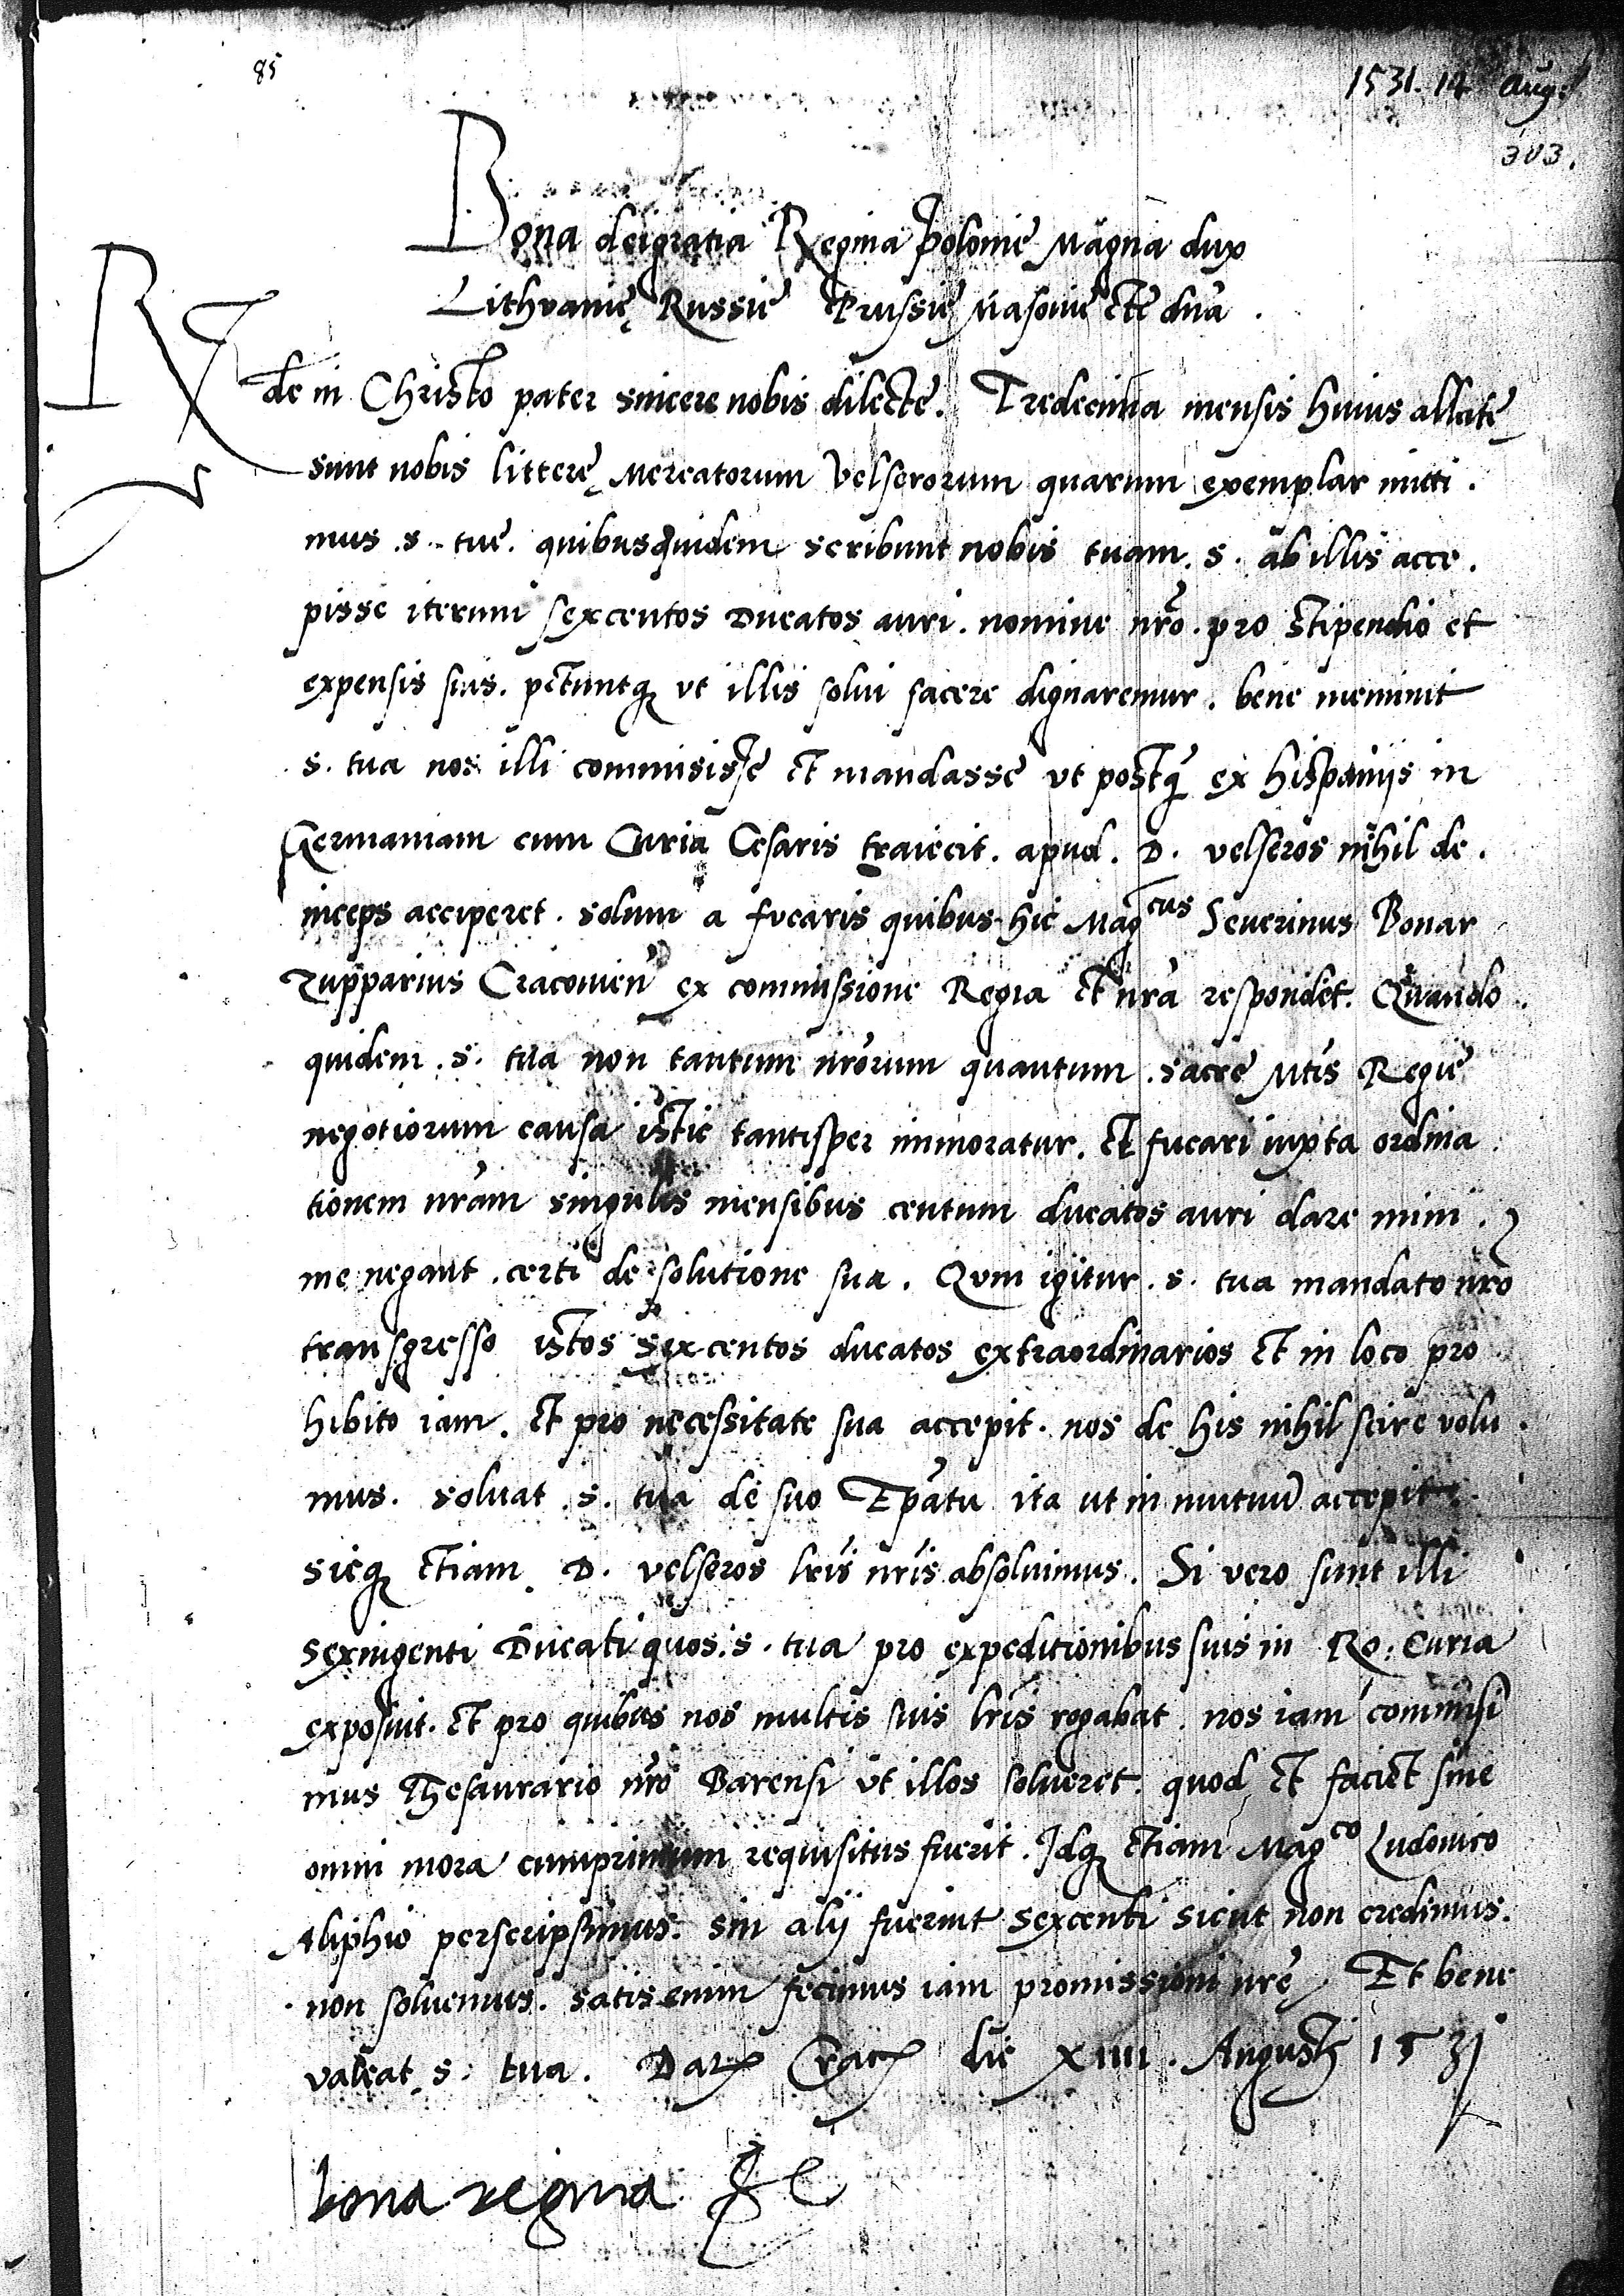 85
1531. 14 Aug:
303.
Bona dei gratia Regina Polonie Magna dux
Lithvanię Russie Prussie Masovie etc dña.
Rde in Christo pater sincere nobis dilecte. Tredecima mensis huius allatę
sunt nobis litterę Mercatorum Velserorum quarum exemplar mitti.
mus .s. tue. quibusquidem scribunt nobis tuam .s. ab illis acce.
pisse iterum sexcentos Ducatos auri. nomine nr̃o. pro stipendio et
expensis suis. petuntq; vt illis solui facere dignaremur. bene meminit
.s. tua nos illi commisisse et mandasse vt postq̃ ex hispanijs in
Germaniam cum Curia Cesaris traiecit. apud. D. velseros nihil de.
inceps acciperet. solum a fucaris quibus hic Magcus Seuerinus Bonar
Zupparius Cracovien̄ ex commissione Regia et nr̃a respondet. Quando.
quidem .s. tua non tantum nr̃orum quantum .sacre Mtis Regie
negotiorum causa istic tantisper immoratur. Et fucari iuxta ordina
tionem nr̃am singulis mensibus centum ducatos auri dare mini.
me negant .certi de solutione sua. Qum igitur .s. tua mandato nr̃o
transgresso istos sexcentos ducatos extraordinarios et in loco pro
hibito iam. Et pro necessitate sua accepit. nos de his nihil scire volu.
mus. soluat .s. tua de suo Ep̃atu ita ut in mutuũ accepit.
sicq; etiam D. velseros lr̃is nr̃is absoluimus. Si vero sunt illi
sexingenti Ducati quos .s. tua pro expeditionibus suis in Ro: Curia
exposuit. Et pro quibus nos multis suis lr̃is rogabat. nos iam commisi
mus Thesaurario nr̃o Barensi vt illos solueret. quod et faciet sine
omni mora cumprimum requisitus fuerit. Idq; etiam Magco Ludovico
Aliphio perscripsimus. sin alij fuerint sexcenti sicut non credimus.
non soluemus. satis enim fecimus iam promissioni nr̃e. Et bene
valeat .s. tua. Dat Crac die XIIII. Augusti 1531
bona regina